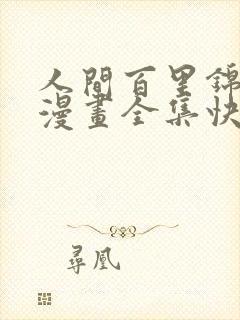 人間百里錦
漫畫全集快
尋凰